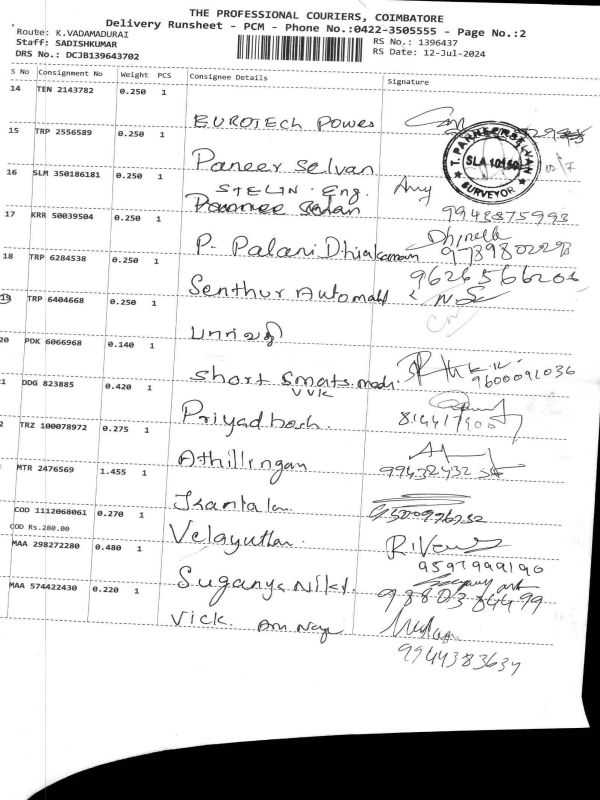 THE PROFESSIONAL COURIERS, COIMBATORE
Delivery Runsheet - PCM - Phone No.:0422-3505555 - Page No.:2
Route: K.VADAMADURAI
Staff: SADISHKUMAR
DRS No.: DCJB139643702
RS No.: 1396437
RS Date: 12-Jul-2024
S No Consignment No Weight PCS Consignee Details Signature
14 TEN 2143782 0.250 1
EUROTECH Power
15 TRP 2556589 0.250 1
Paneer Selvan
T. PANNEERSELVAN
SLA 10159
SURVEYOR
16 SLM 350186181 0.250 1
STELIN Eng.
Any
9943875993
17 KRR 50039504 0.250 1
P- Palani Dhiakaran
9789802293
18 TRP 6284538 0.250 1
Senthur Automat
9626566206
19 TRP 6404668 0.250 1
பார்வதி
20 PDK 6066968 0.140 1
Short Smats madr.
VVK
9600091036
1 DDG 823885 0.420 1
Priyadhosh.
2 TRZ 100078972 0.275 1
Athillingan
MTR 2476569 1.455 1
COD 1112068061 0.270 1
COD Rs.280.00
Velayuthan.
9597999190
MAA 298272280 0.480 1
Suganya
9880384499
MAA 574422430 0.220 1
Vick.
9944383637